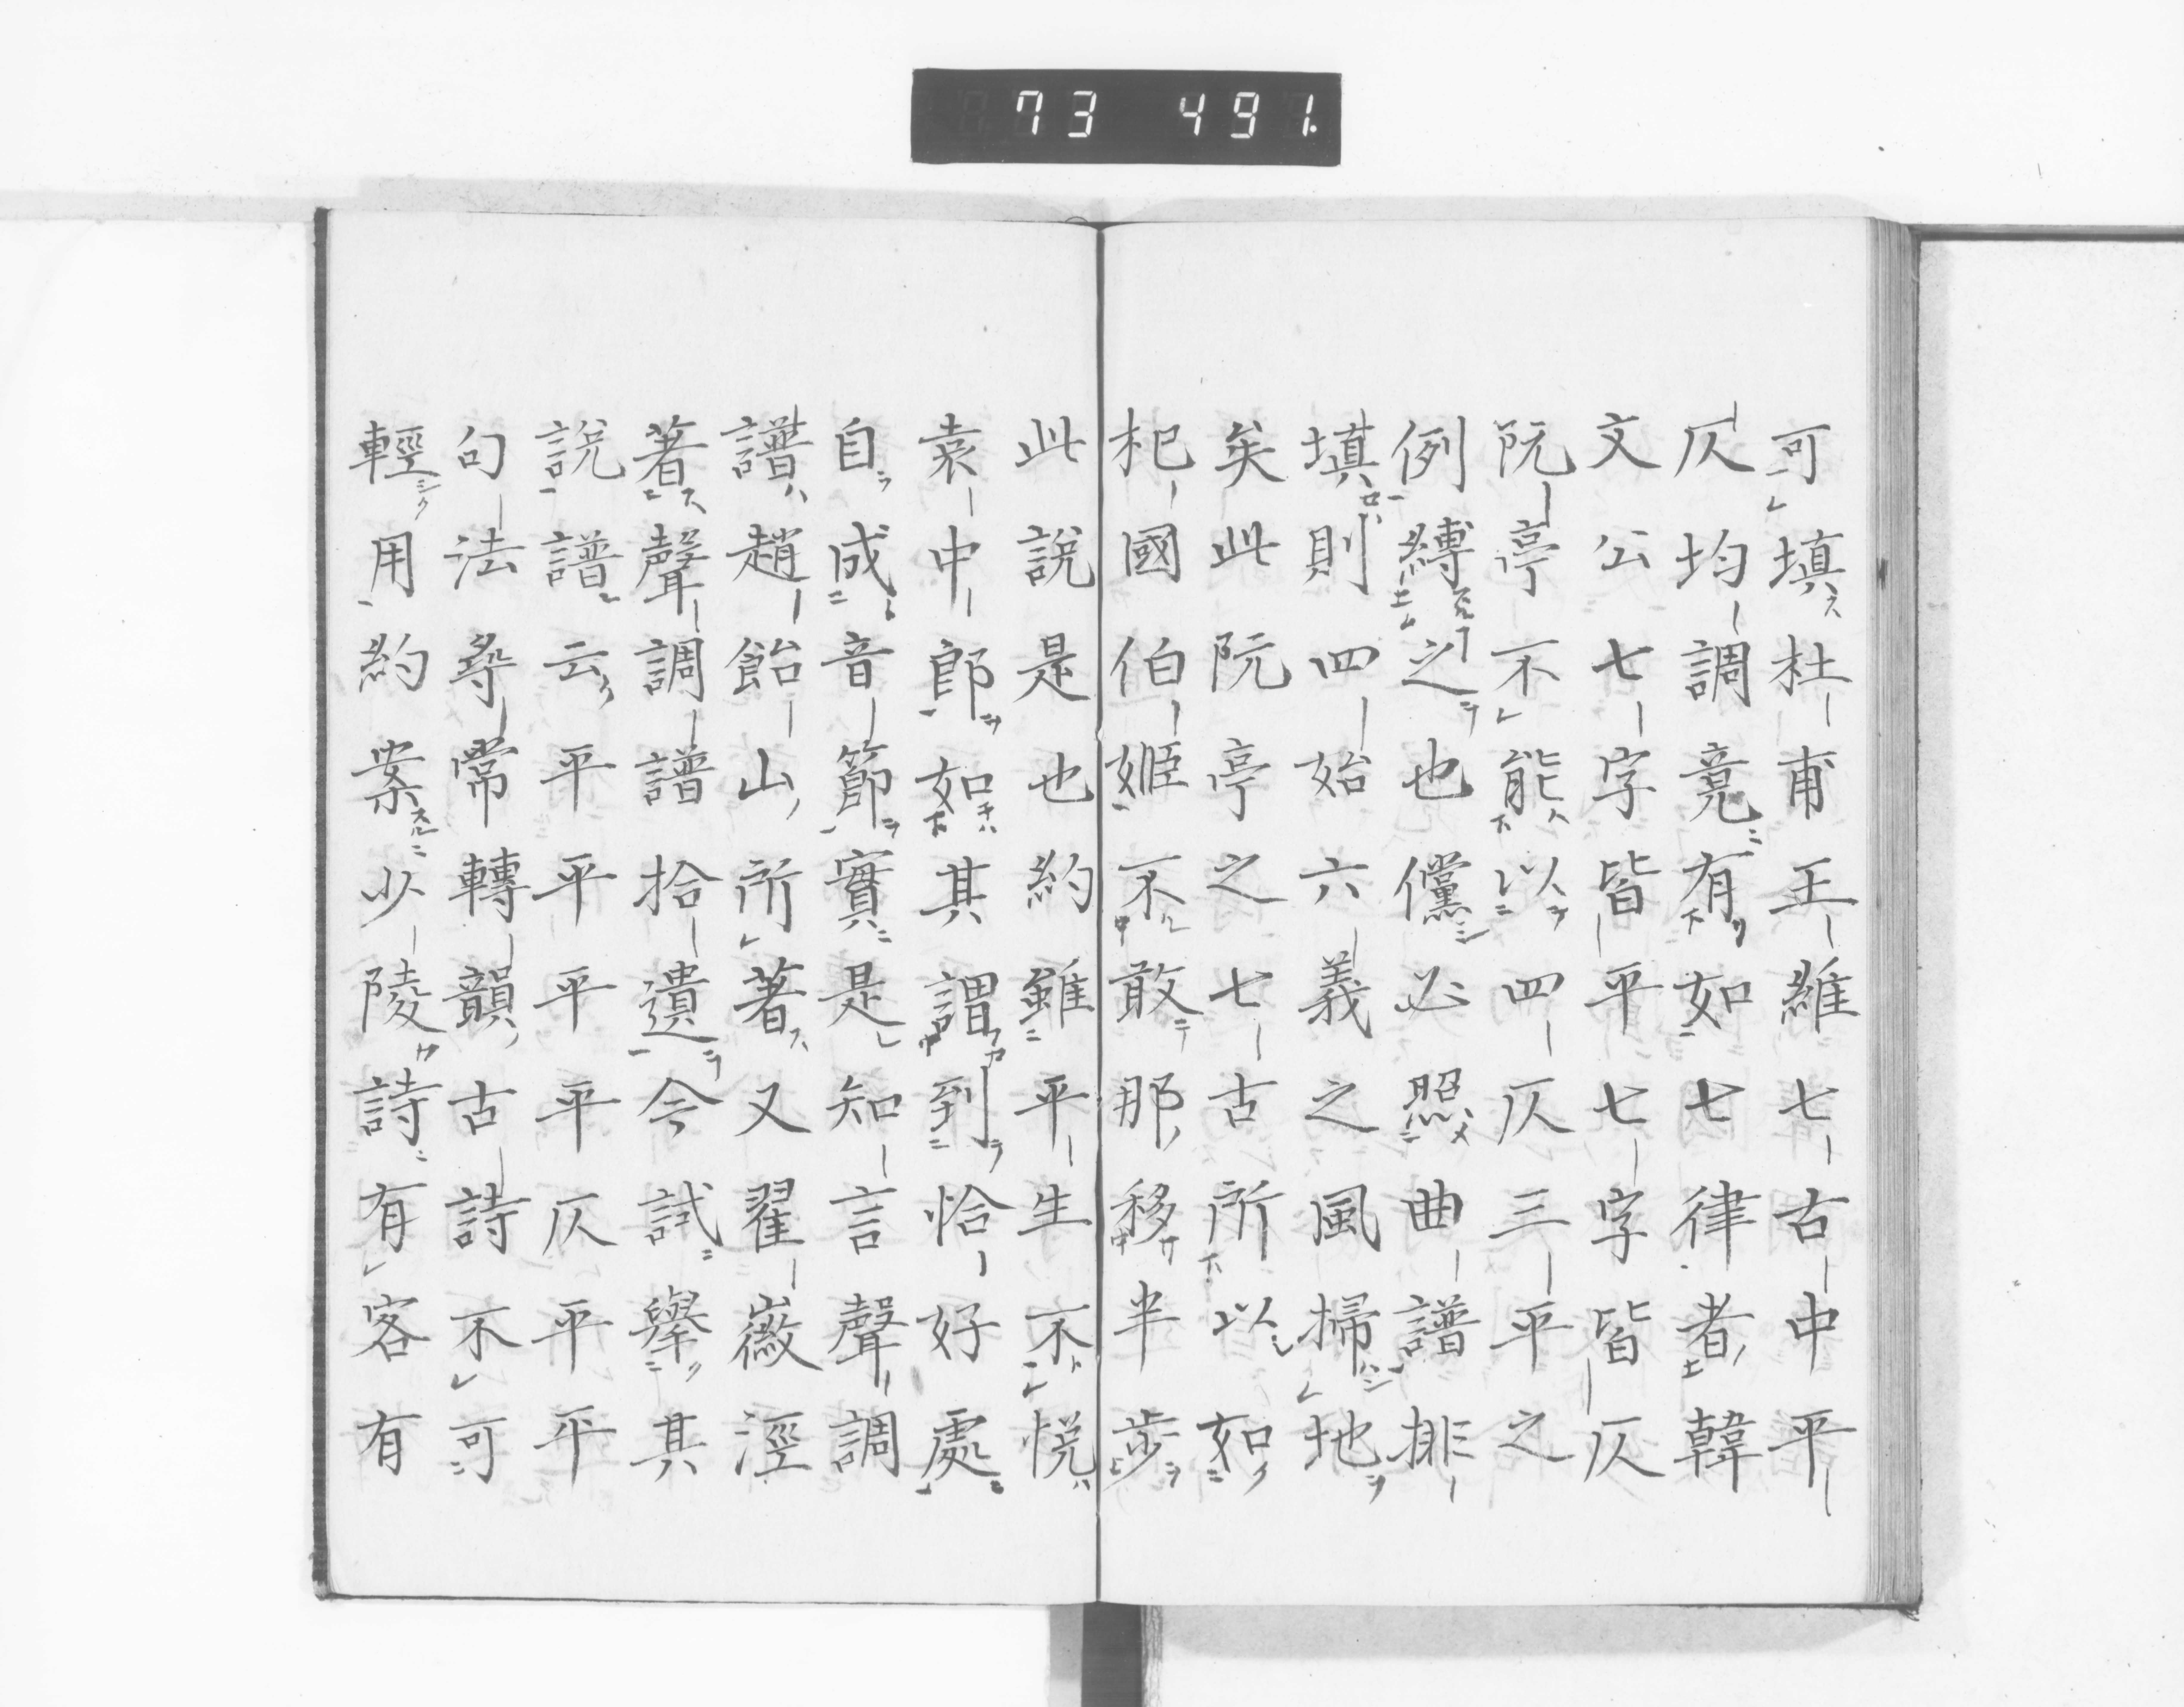 73 491.
可填杜甫王維七古中平
仄均調竟有如七律者韓
文公七字皆平七字皆仄
阮亭不能以四仄三平之
例縛之也儻必照曲譜排
填則四始六義之風掃地
矣此阮亭之七古所以如
杞國伯姬不敢那移半步
此說是也約雖平生不悅
袁中郎如其謂到恰好處
自成音節實是知言聲調
譜趙飴山所著又翟㠪涇
著聲調譜拾遺今試舉其
說譜云平平平平仄平平
句法尋常轉韻古詩不可
輕用約案少陵詩有客有